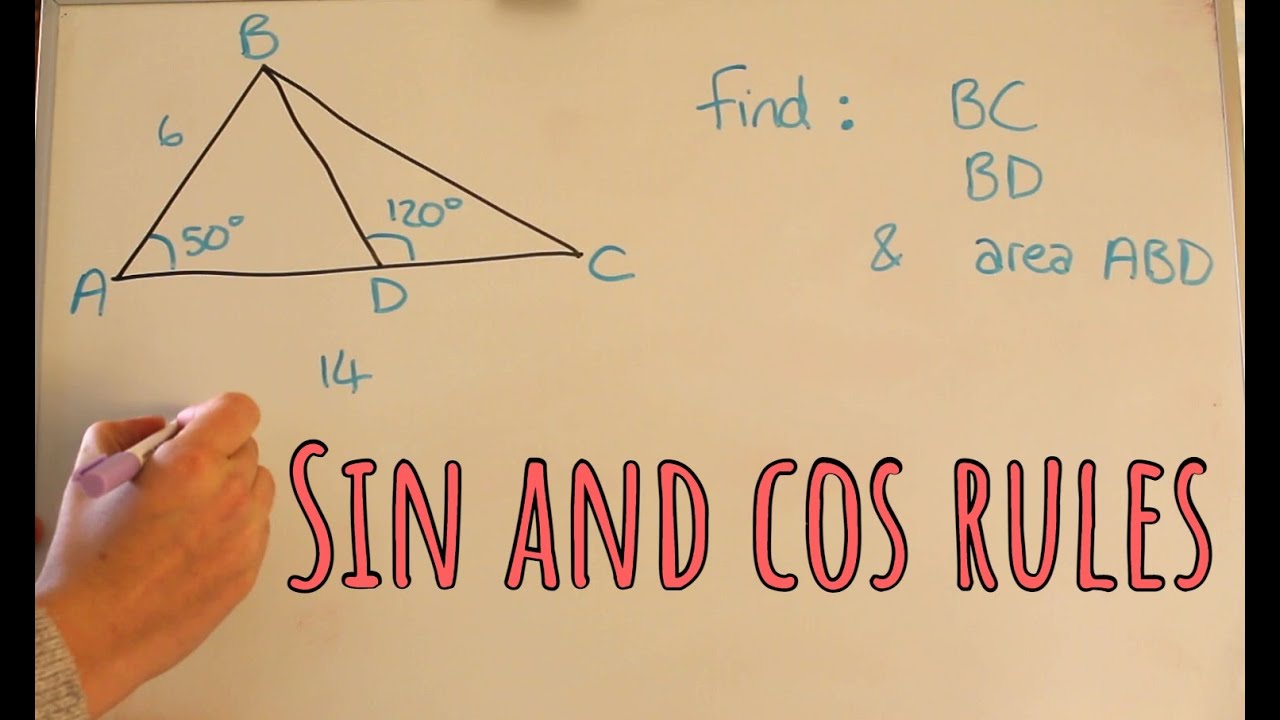 B
6
50°
120°
A
D
C
14
find: BC
BD
& area ABD
SIN AND COS RULES